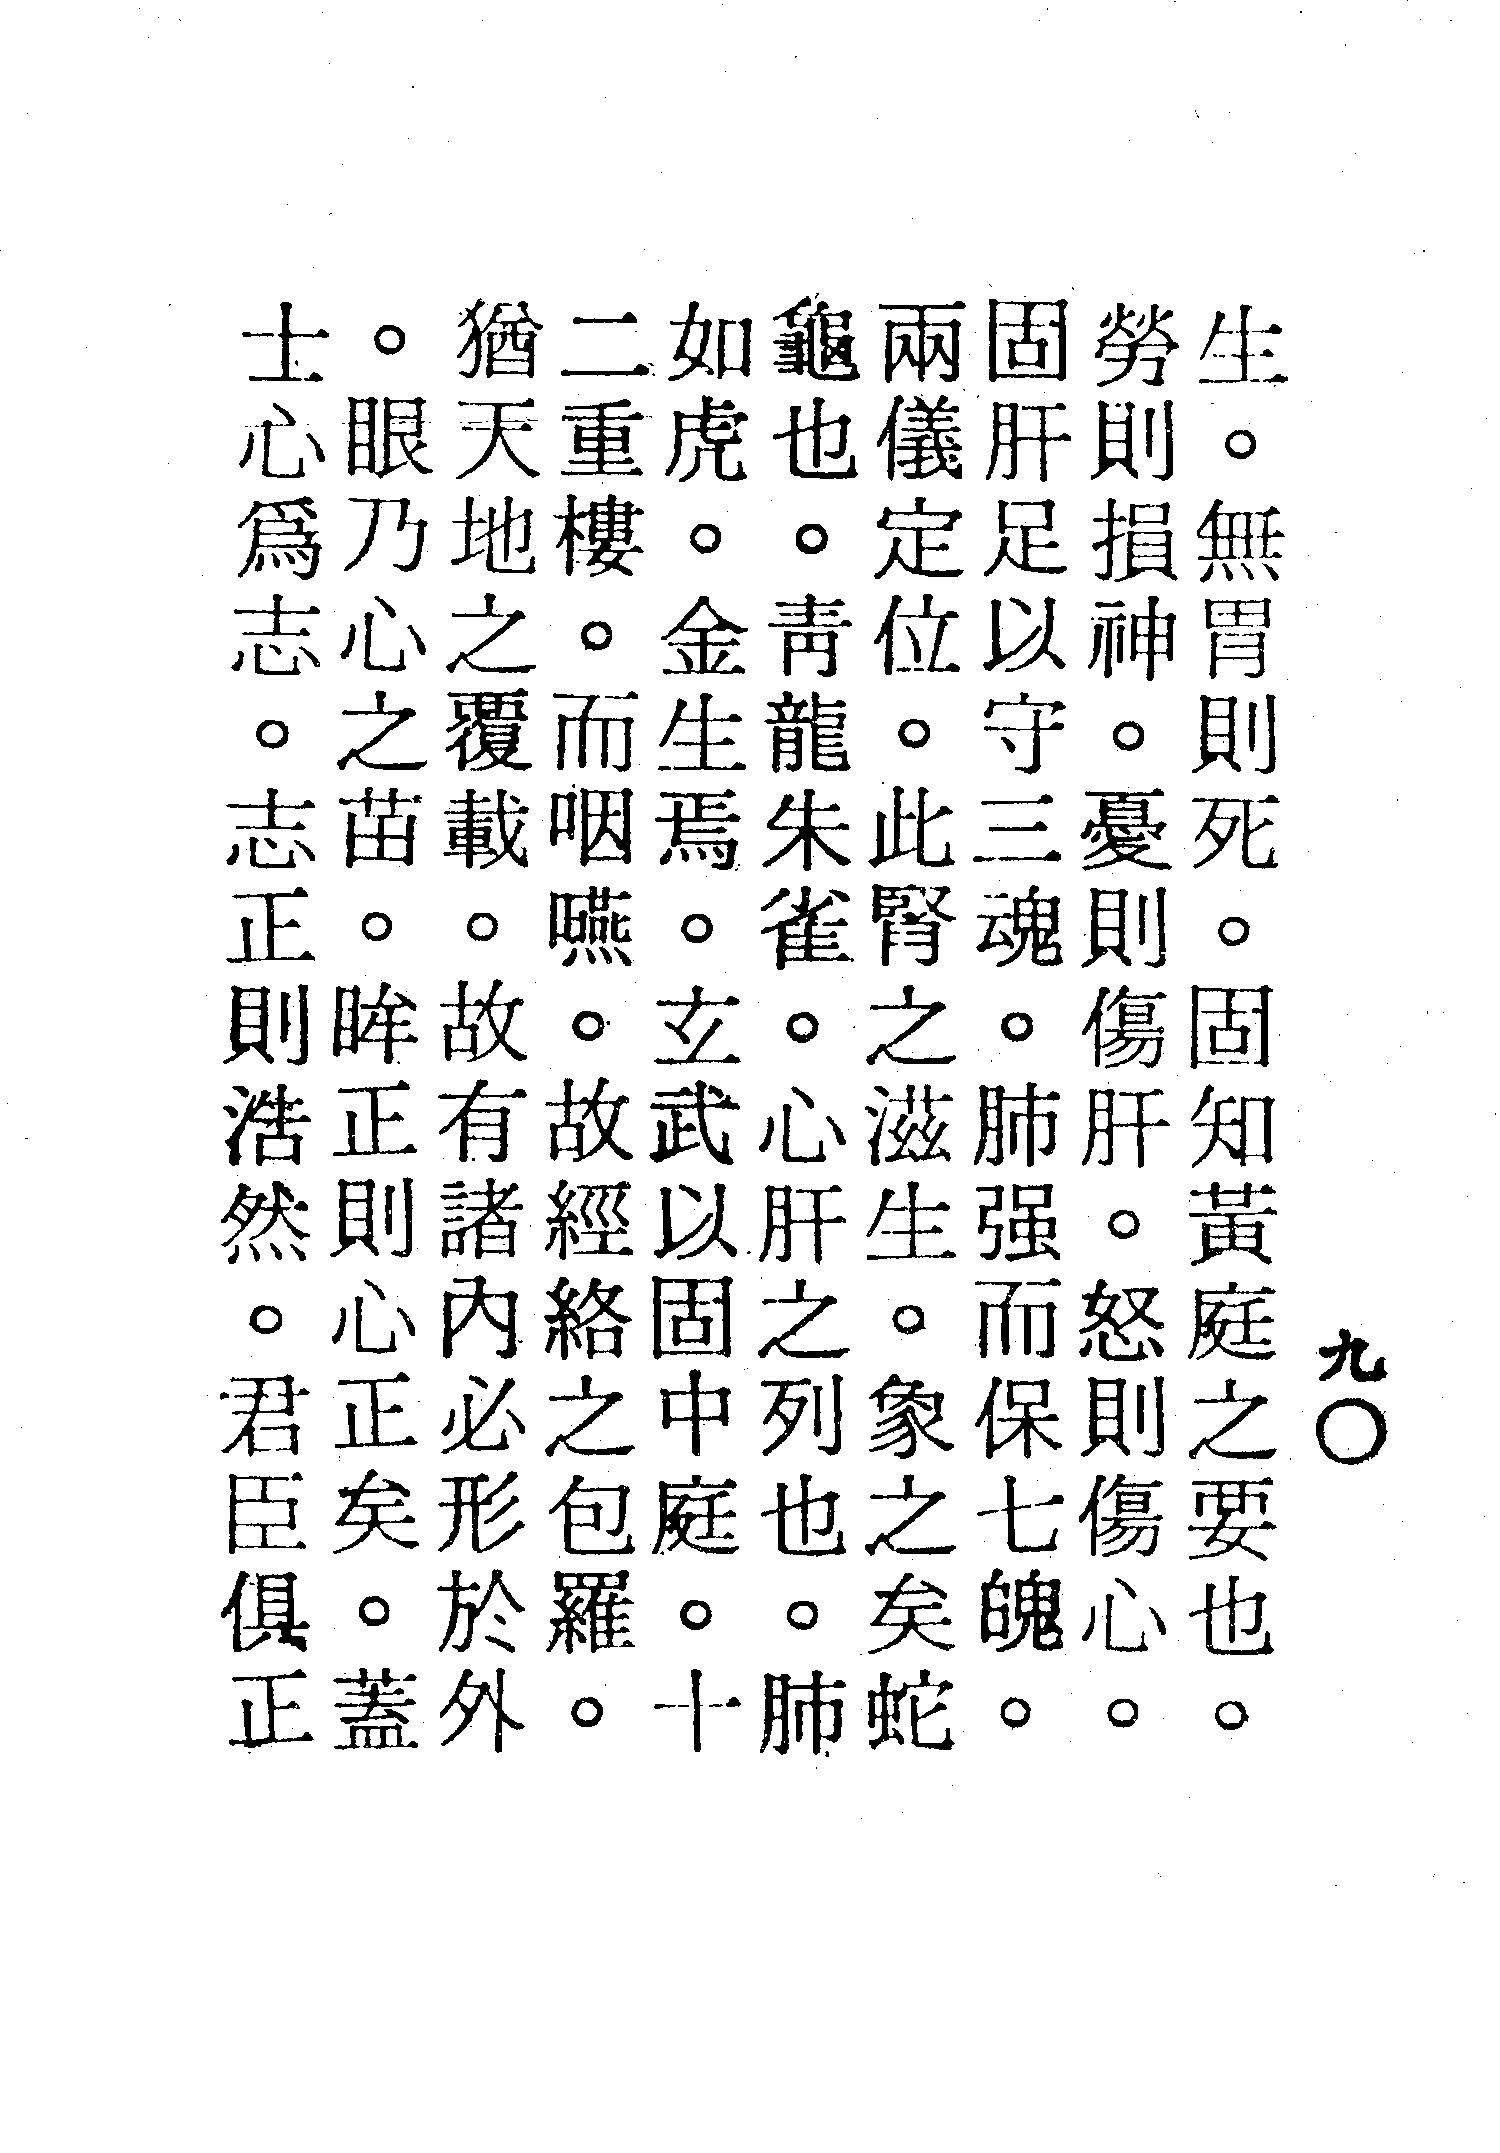 九〇
生。無胃則死。固知黃庭之要也。
勞則損神。憂則傷肝。怒則傷心。
固肝足以守三魂。肺强而保七魄。
兩儀定位。此腎之滋生。象之矣蛇
龜也。靑龍朱雀。心肝之列也。肺
如虎。金生焉。玄武以固中庭。十
二重樓。而咽嚥。故經絡之包羅。
猶天地之覆載。故有諸內必形於外
。眼乃心之苗。眸正則心正矣。蓋
士心爲志。志正則浩然。君臣俱正